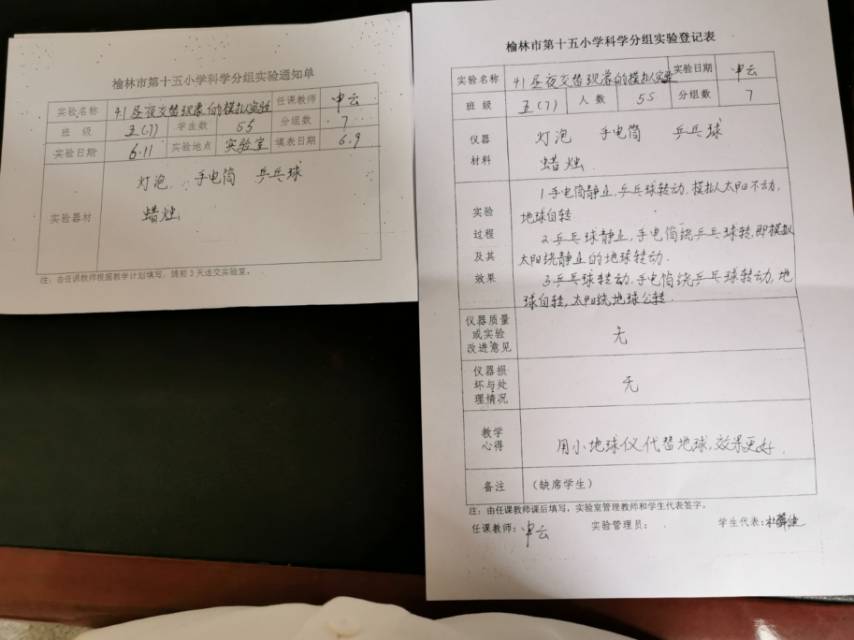 榆林市第十五小学科学分组实验通知单
实验名称 41昼夜交替现象的模拟实验 任课教师 申云
班 级 五(7) 学生数 55 分组数 7
实验日期 6.11 实验地点 实验室 填表日期 6.9
实验器材
灯泡 手电筒 乒乓球
蜡烛
注:由任课教师根据教学计划填写,提前3天送交实验室。
榆林市第十五小学科学分组实验登记表
实验名称 41昼夜交替现象的模拟实验 实验日期 申云
班 级 五(7) 人 数 55 分组数 7
仪器
材料
灯泡 手电筒 乒乓球
蜡烛
实验
过程
及其
效果
1手电筒静止,乒乓球转动.模拟太阳不动,
地球自转.
2.乒乓球静止,手电筒绕乒乓球转,即模拟
太阳绕静止的地球转动.
3.乒乓球转动.手电筒绕乒乓球转动,地
球自转,太阳绕地球公转.
仪器质量
或实验
改进意见
无
仪器损
坏与处
理情况
无
教学
心得
用小地球仪代替地球,效果更好.
备注 (缺席学生)
注:由任课教师课后填写,实验室管理教师和学生代表签字。
任课教师:申云 实验管理员: 学生代表: